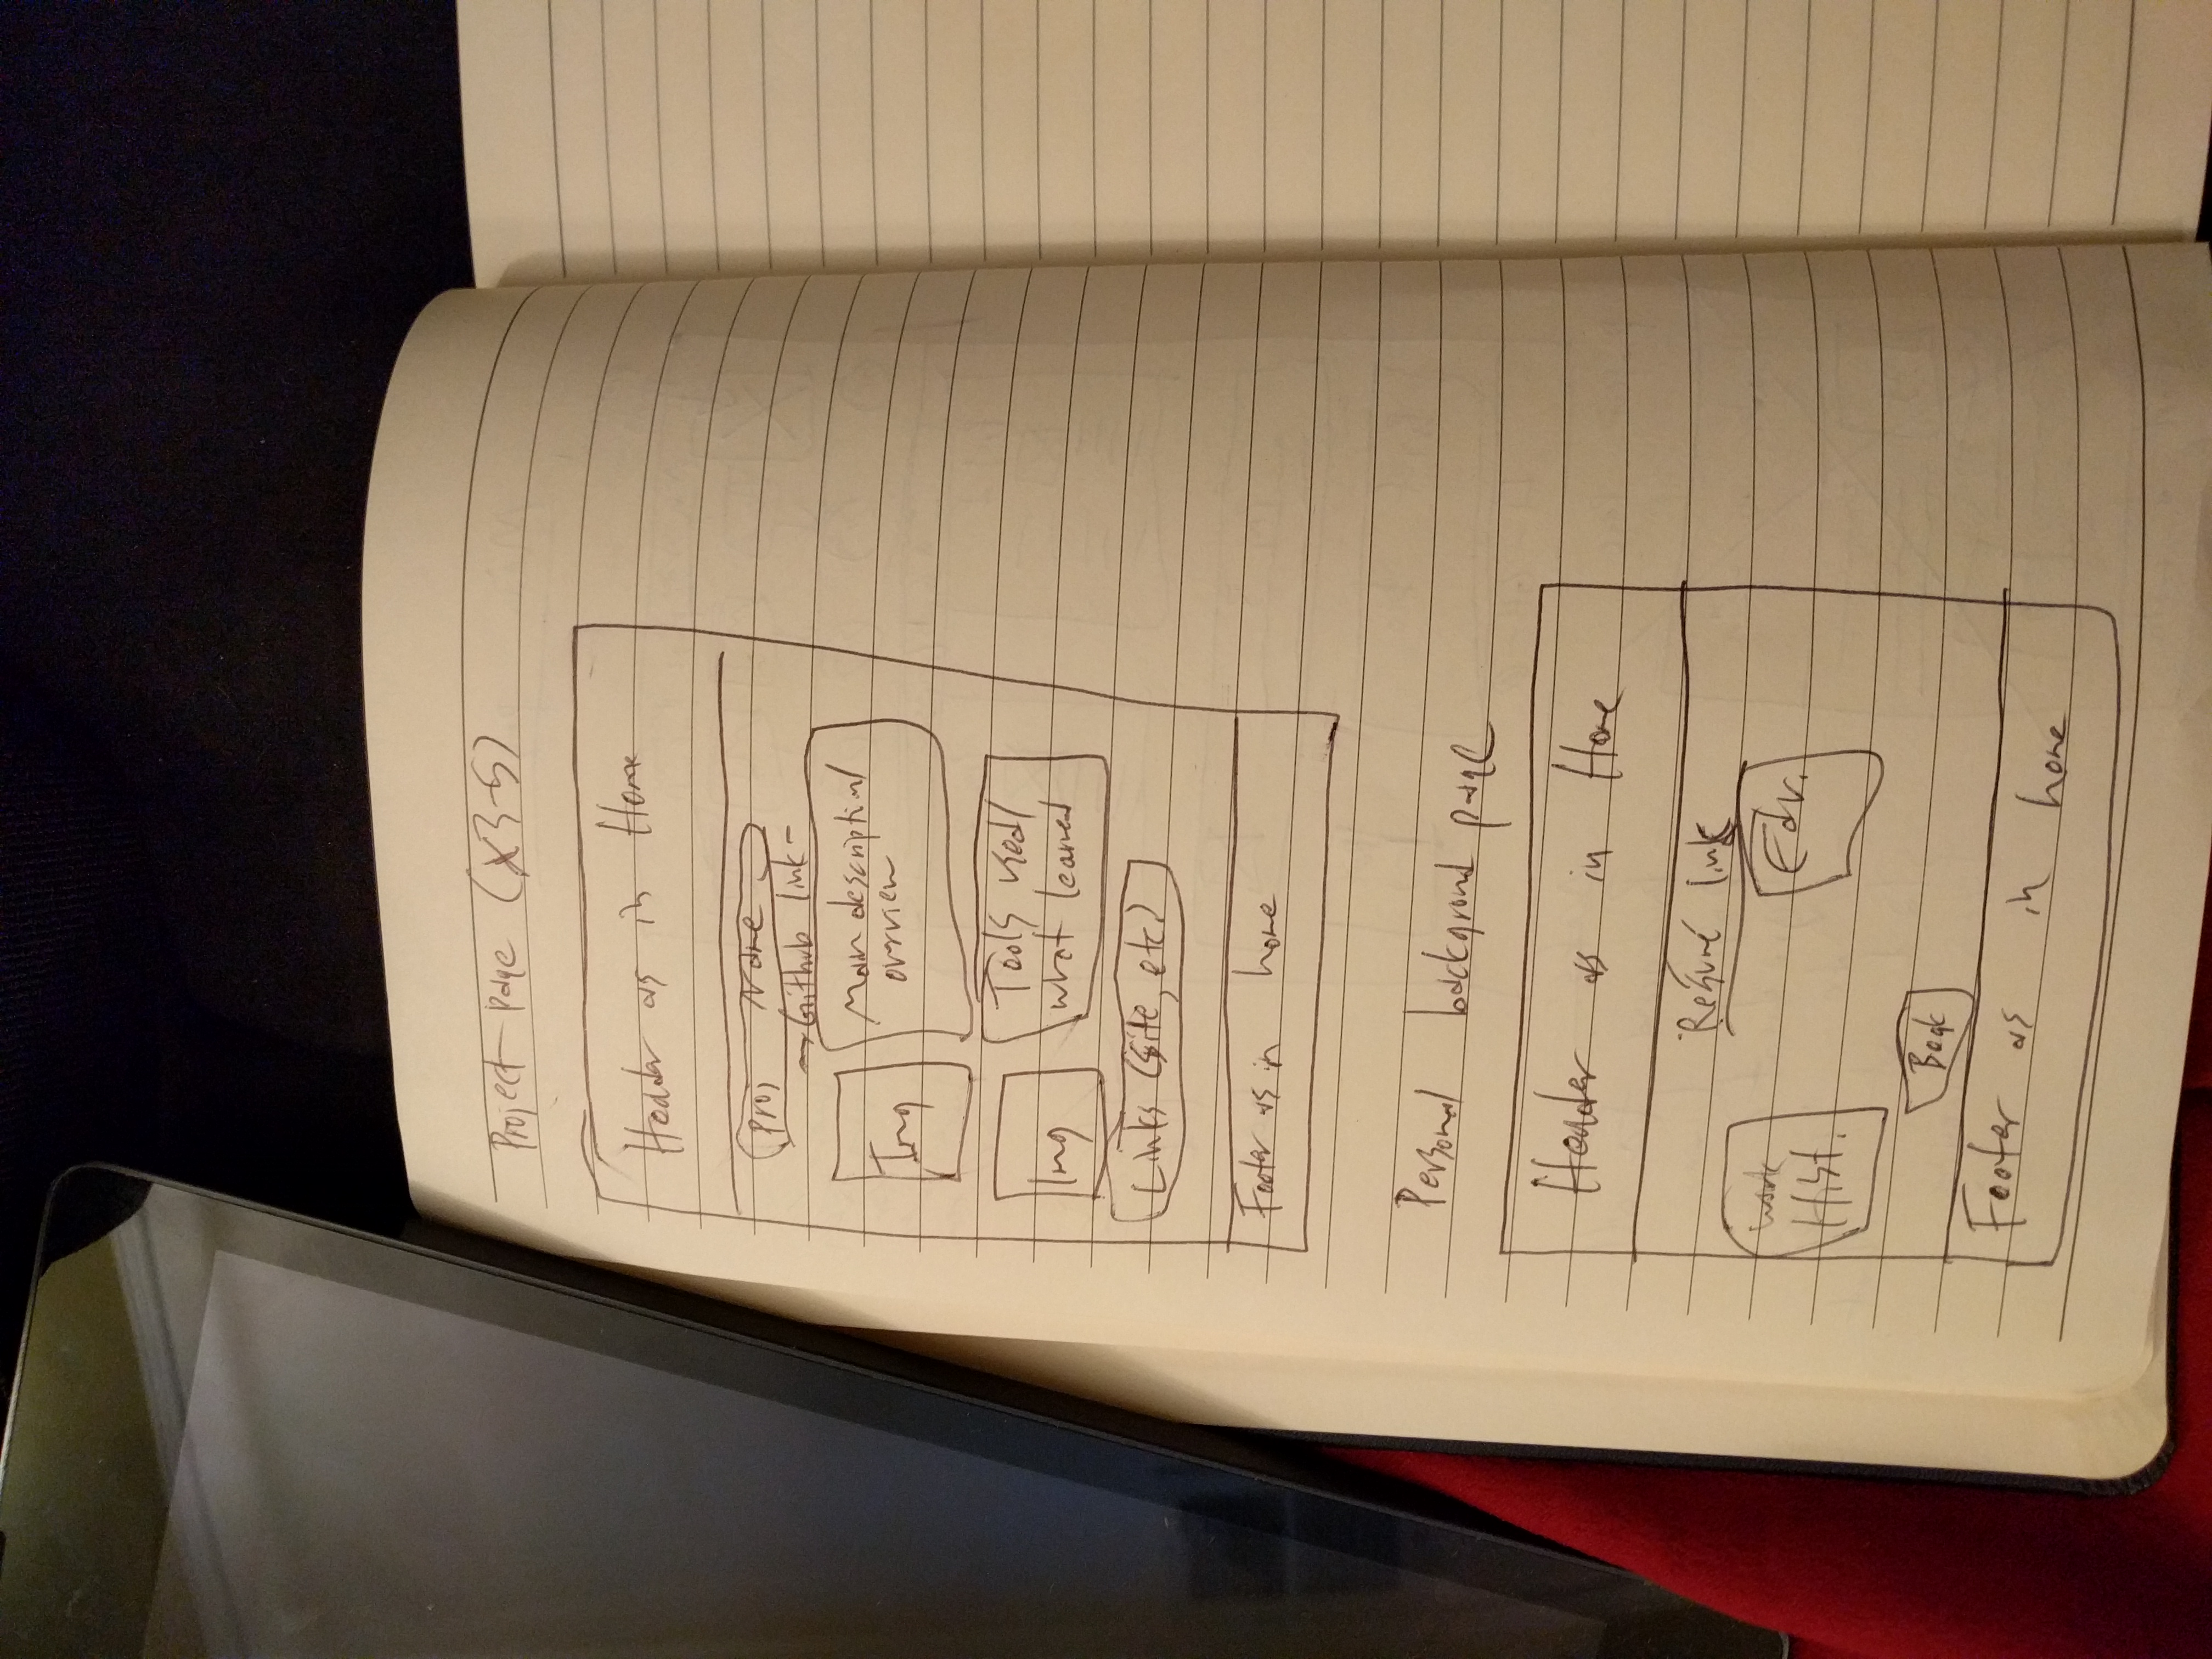 Project page (x3-5)
Header as in Home
Proj Name
Github link
Img
Main description/
overview
Img
Tools used/
what learned
Links (site, etc)
Footer as in home
Personal background page
Header as in Home
Resume link
Work
Hist.
Edu.
Footer as in home